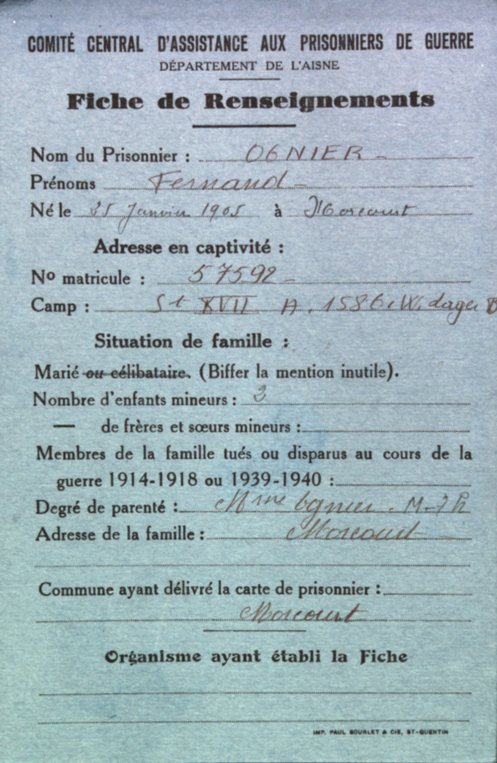 COMITÉ CENTRAL D'ASSISTANCE AUX PRISONNIERS DE GUERRE
DÉPARTEMENT DE L'AISNE
Fiche de Renseignements
Nom du Prisonnier : OGNIER
Prénoms Fernand
Né le 25 Janvier 1905 à Morcourt
Adresse en captivité :
No matricule : 57592
Camp : St XVII A. 1586
Situation de famille :
Marié ou célibataire. (Biffer la mention inutile).
Nombre d'enfants mineurs :
— de frères et sœurs mineurs :
Membres de la famille tués ou disparus au cours de la
guerre 1914-1918 ou 1939-1940 :
Degré de parenté : Mme Ognier
Adresse de la famille : Morcourt
Commune ayant délivré la carte de prisonnier :
Morcourt
Organisme ayant établi la Fiche
IMP. PAUL BOURLET & CIE, ST-QUENTIN